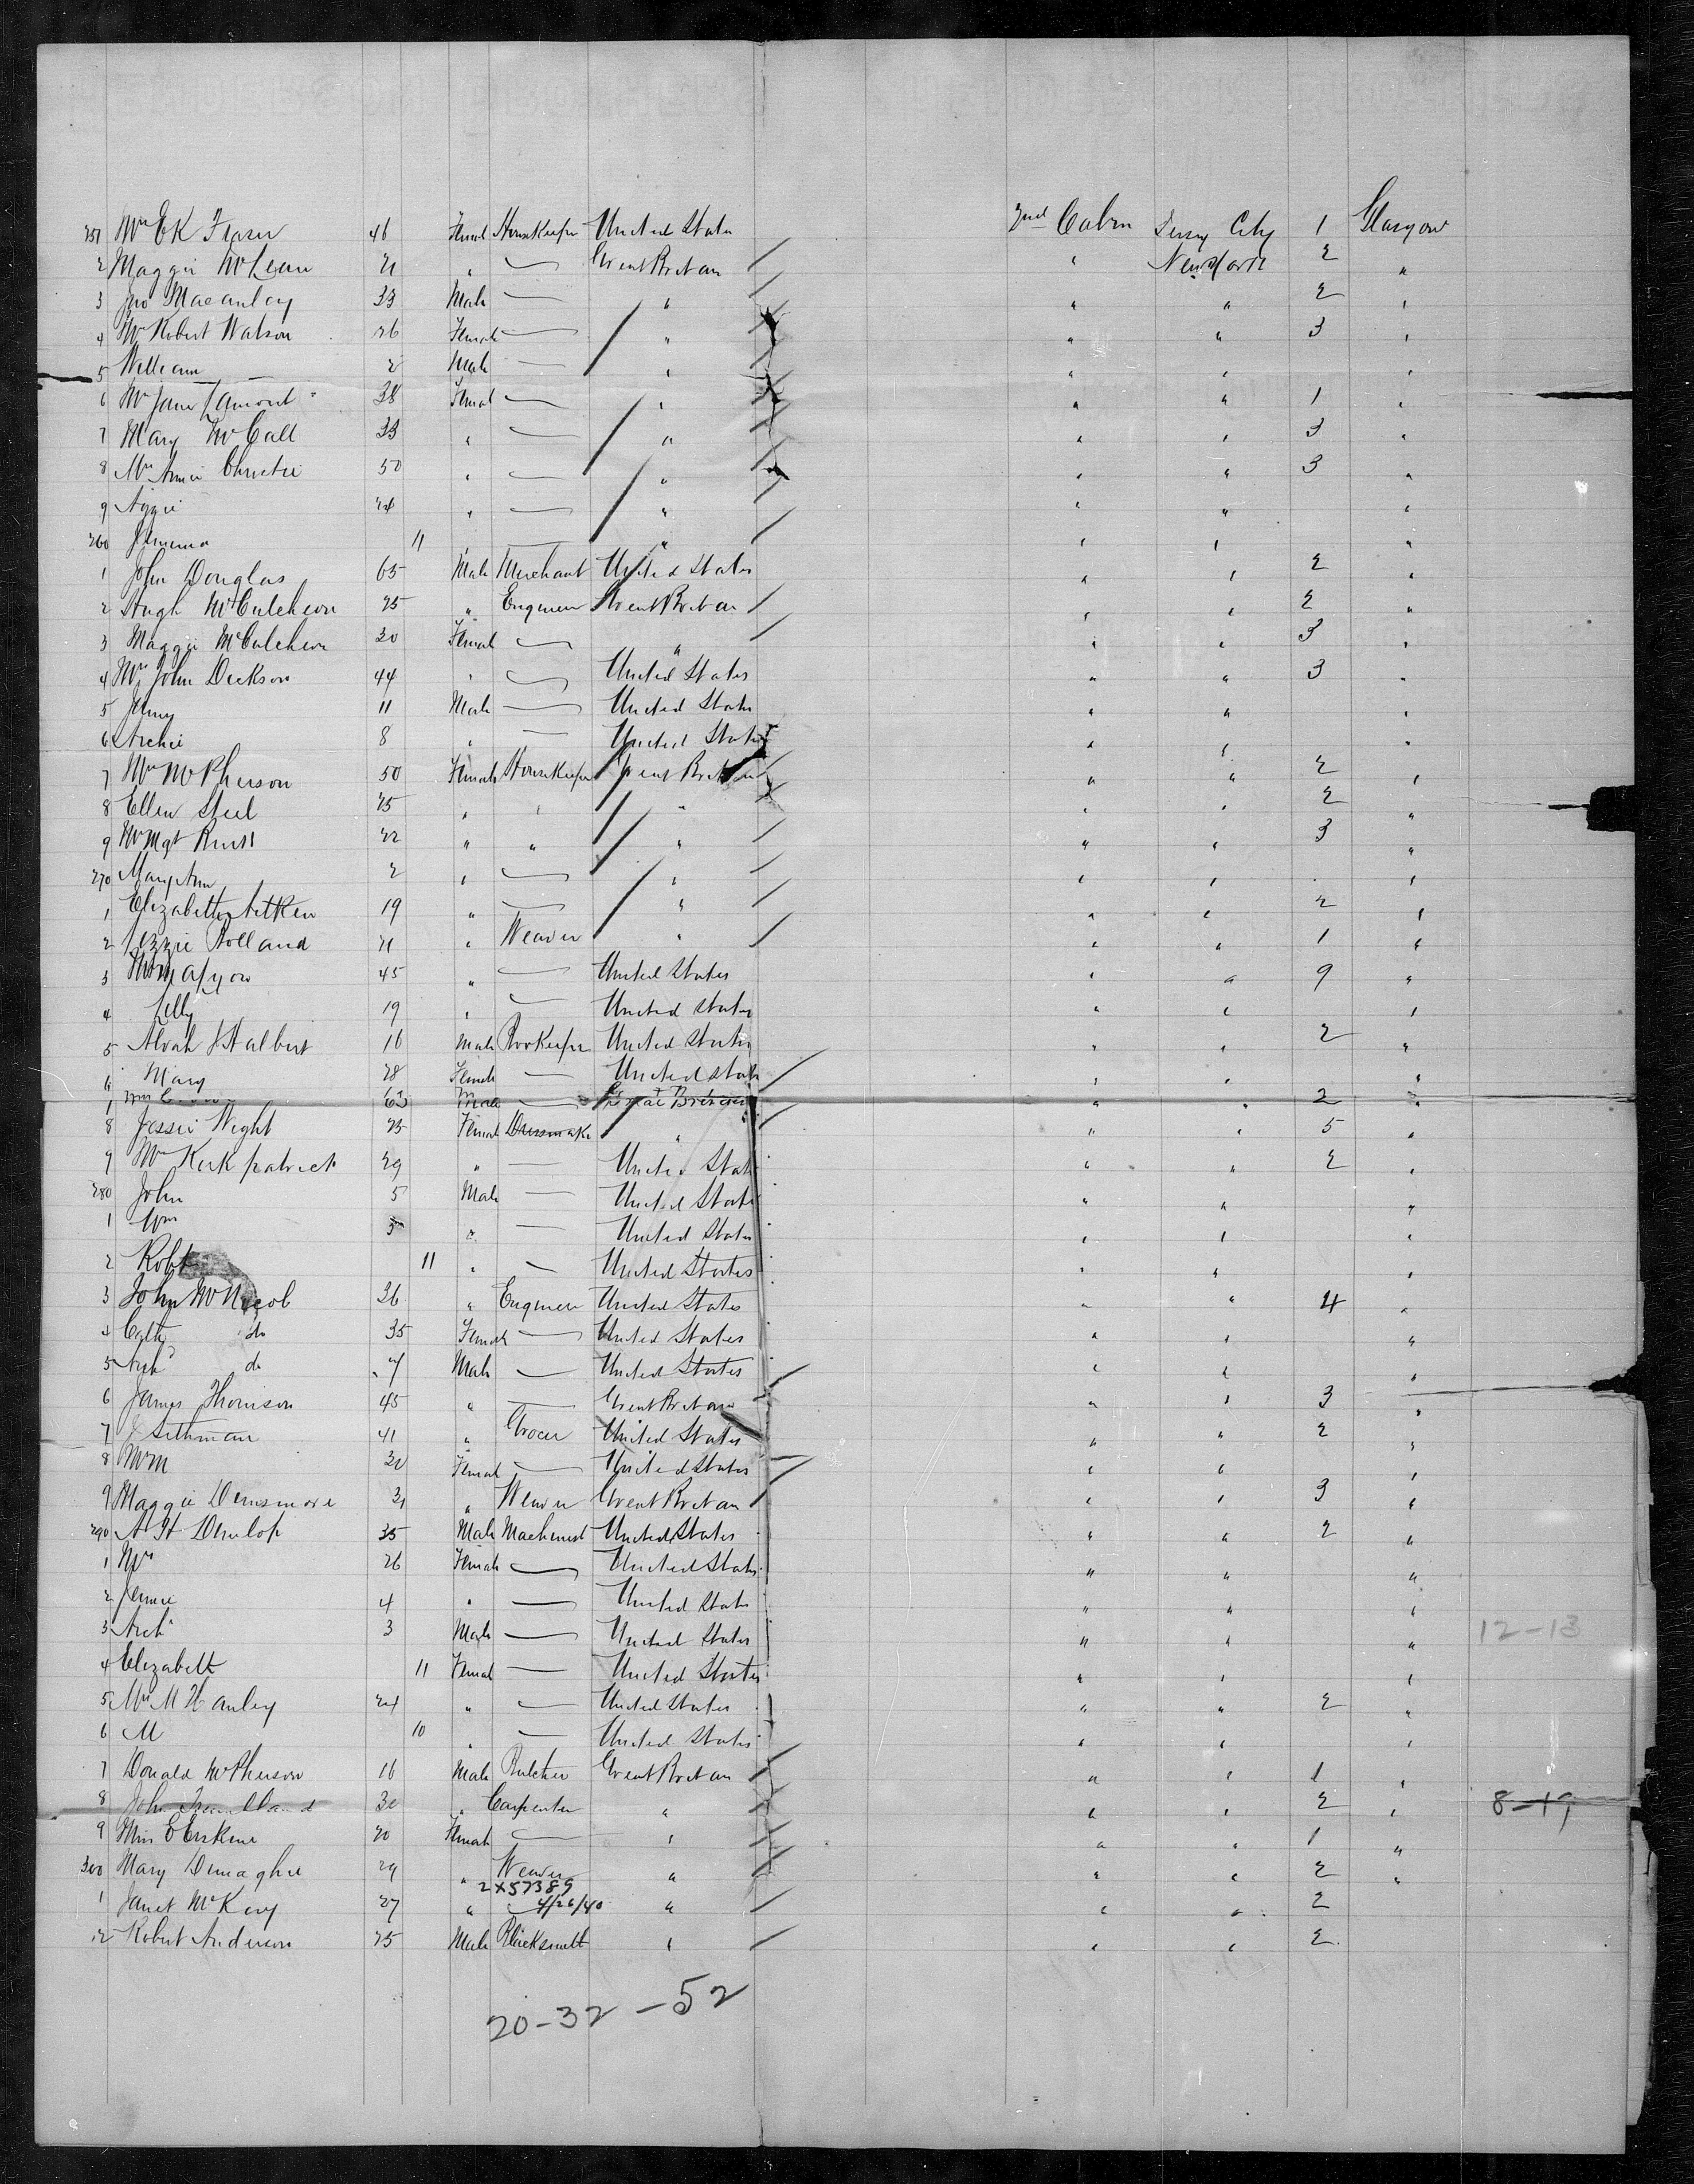 251 Mrs E K Fraser 46 Femal HouseKeeper United States 2nd Cabin Jersey City 1 Glasgow
2 Maggie McLean 21 " — Great Britain / " New York 2 "
3 Jno Macauley 33 Male — " / " " 2 "
4 Mrs Robert Watson 26 Female — " / " " 3 "
5 William 2 Male — " / " " "
6 Mrs Jane Lamont 38 Femal — " / " " 1 "
7 Mary McCall 33 " — " / " " 3 "
8 Mrs Annie Christie 50 " — " / " " 3 "
9 Aggie 24 " — " / " " "
260 Jemima 11 " — " / " " "
1 John Douglas 65 Male Merchant United States " " 2 "
2 Hugh McCutcheon 25 " Engineer Great Britain / " " 2 "
3 Maggie McCutcheon 30 Femal — " / " " 3 "
4 Mrs John Dickson 44 " — United States " " 3 "
5 Jimy 11 Male — United States " " "
6 Archie 8 " — United States " " "
7 Mrs McPherson 50 Female HouseKeeper Great Britain / " " 2 "
8 Ellen Steel 25 " " " / " " 2 "
9 Mrs Mgt 22 " " " / " " 3 "
270 Mary Ann 2 " — " / " " "
1 Elizabeth Aitken 19 " — " / " " 2 "
2 Lizzie Bolland 21 " Weaver " / " " 1 "
3 45 " — United States " " 9 "
4 Lilly 19 " — United States " " "
5 Alvah Halbert 16 Male BooKeeper United States " " 2 "
6 Mary 28 Female — United States / " " "
7 Wm 63 Male — Great Britain " " 2 "
8 Jessie Wight 25 Femal Dressmaker " / " " 5 "
9 Mrs Kirkpatrick 29 " — United States " " 2 "
280 John 5 Male — United States " " "
1 Wm 3 " — United States " " "
2 Robt 11 " — United States " " "
3 John McNicol 36 " Engineer United States " " 4 "
4 Cath do 35 Female — United States " " "
5 Archd do 7 Male — United States " " "
6 James Thomson 45 " — Great Britain / " " 3 "
7 41 " Grocer United States " " 2 "
8 Mrs M 30 Femal — United States / " " "
9 Maggie Dunsmore 31 " Weaver Great Britain / " " 3 "
290 A H Dunlop 35 Male Machinist United States " " 2 "
1 Mrs 26 Female — United States " " "
2 Jennie 4 " — United States " " "
3 Archd 3 Male — United States " " " 12-13
4 Elizabeth 11 Femal — United States " " "
5 Mrs M Hanley 24 " — United States " " 2 "
6 M 10 " — United States " " "
7 Donald McPherson 16 Male Butcher Great Britain / " " 1 "
8 John 30 " Carpenter " / " " 2 " 8-19
9 Miss E Erskine 20 Female — " / " " 1 "
300 Mary 29 " Weaver " / " " 2 "
2X57389
1 Janet McKay 27 " 4/26/40 " / " " 2
2 Robert Anderson 25 Male Blacksmith " / " " 2
20-32-52